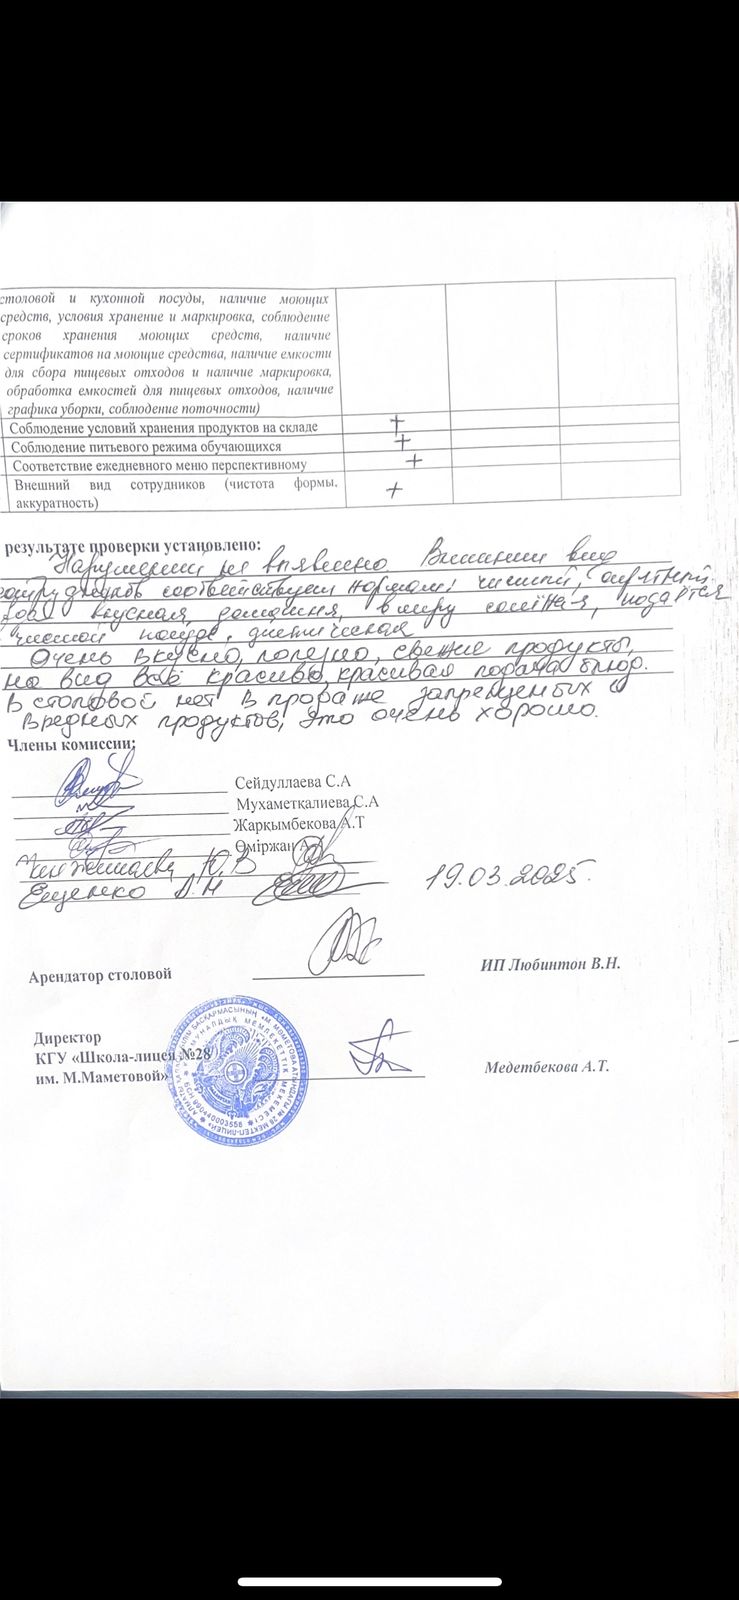 столовой и кухонной посуды, наличие моющих
средств, условия хранение и маркировка, соблюдение
сроков хранения моющих средств, наличие
сертификатов на моющие средства, наличие емкости
для сбора пищевых отходов и наличие маркировка,
обработка емкостей для пищевых отходов, наличие
графика уборки, соблюдение поточности)
Соблюдение условий хранения продуктов на складе +
Соблюдение питьевого режима обучающихся +
Соответствие ежедневного меню перспективному +
Внешний вид сотрудников (чистота формы, +
аккуратность)
результате проверки установлено:
Нарушений не выявлено. Внешний вид
сотрудников соответствует нормам: чистый, опрятный.
вкусная, домашняя, в меру солёная, подаётся
чистой посуде, диетическая
Очень вкусно, полезно, свежие продукты,
на вид всё красиво, красивая подача блюд.
В столовой нет в продаже запрещенных и
вредных продуктов, это очень хорошо.
Члены комиссии:
Сейдуллаева С.А
Мухаметкалиева С.А
Жаркымбекова А.Т
Өміржан А
Ю.В
Ещенко Л.Н
19.03.2025.
Арендатор столовой ИП Любинтон В.Н.
Директор
КГУ «Школа-лицей №28
им. М.Маметовой» Медетбекова А.Т.